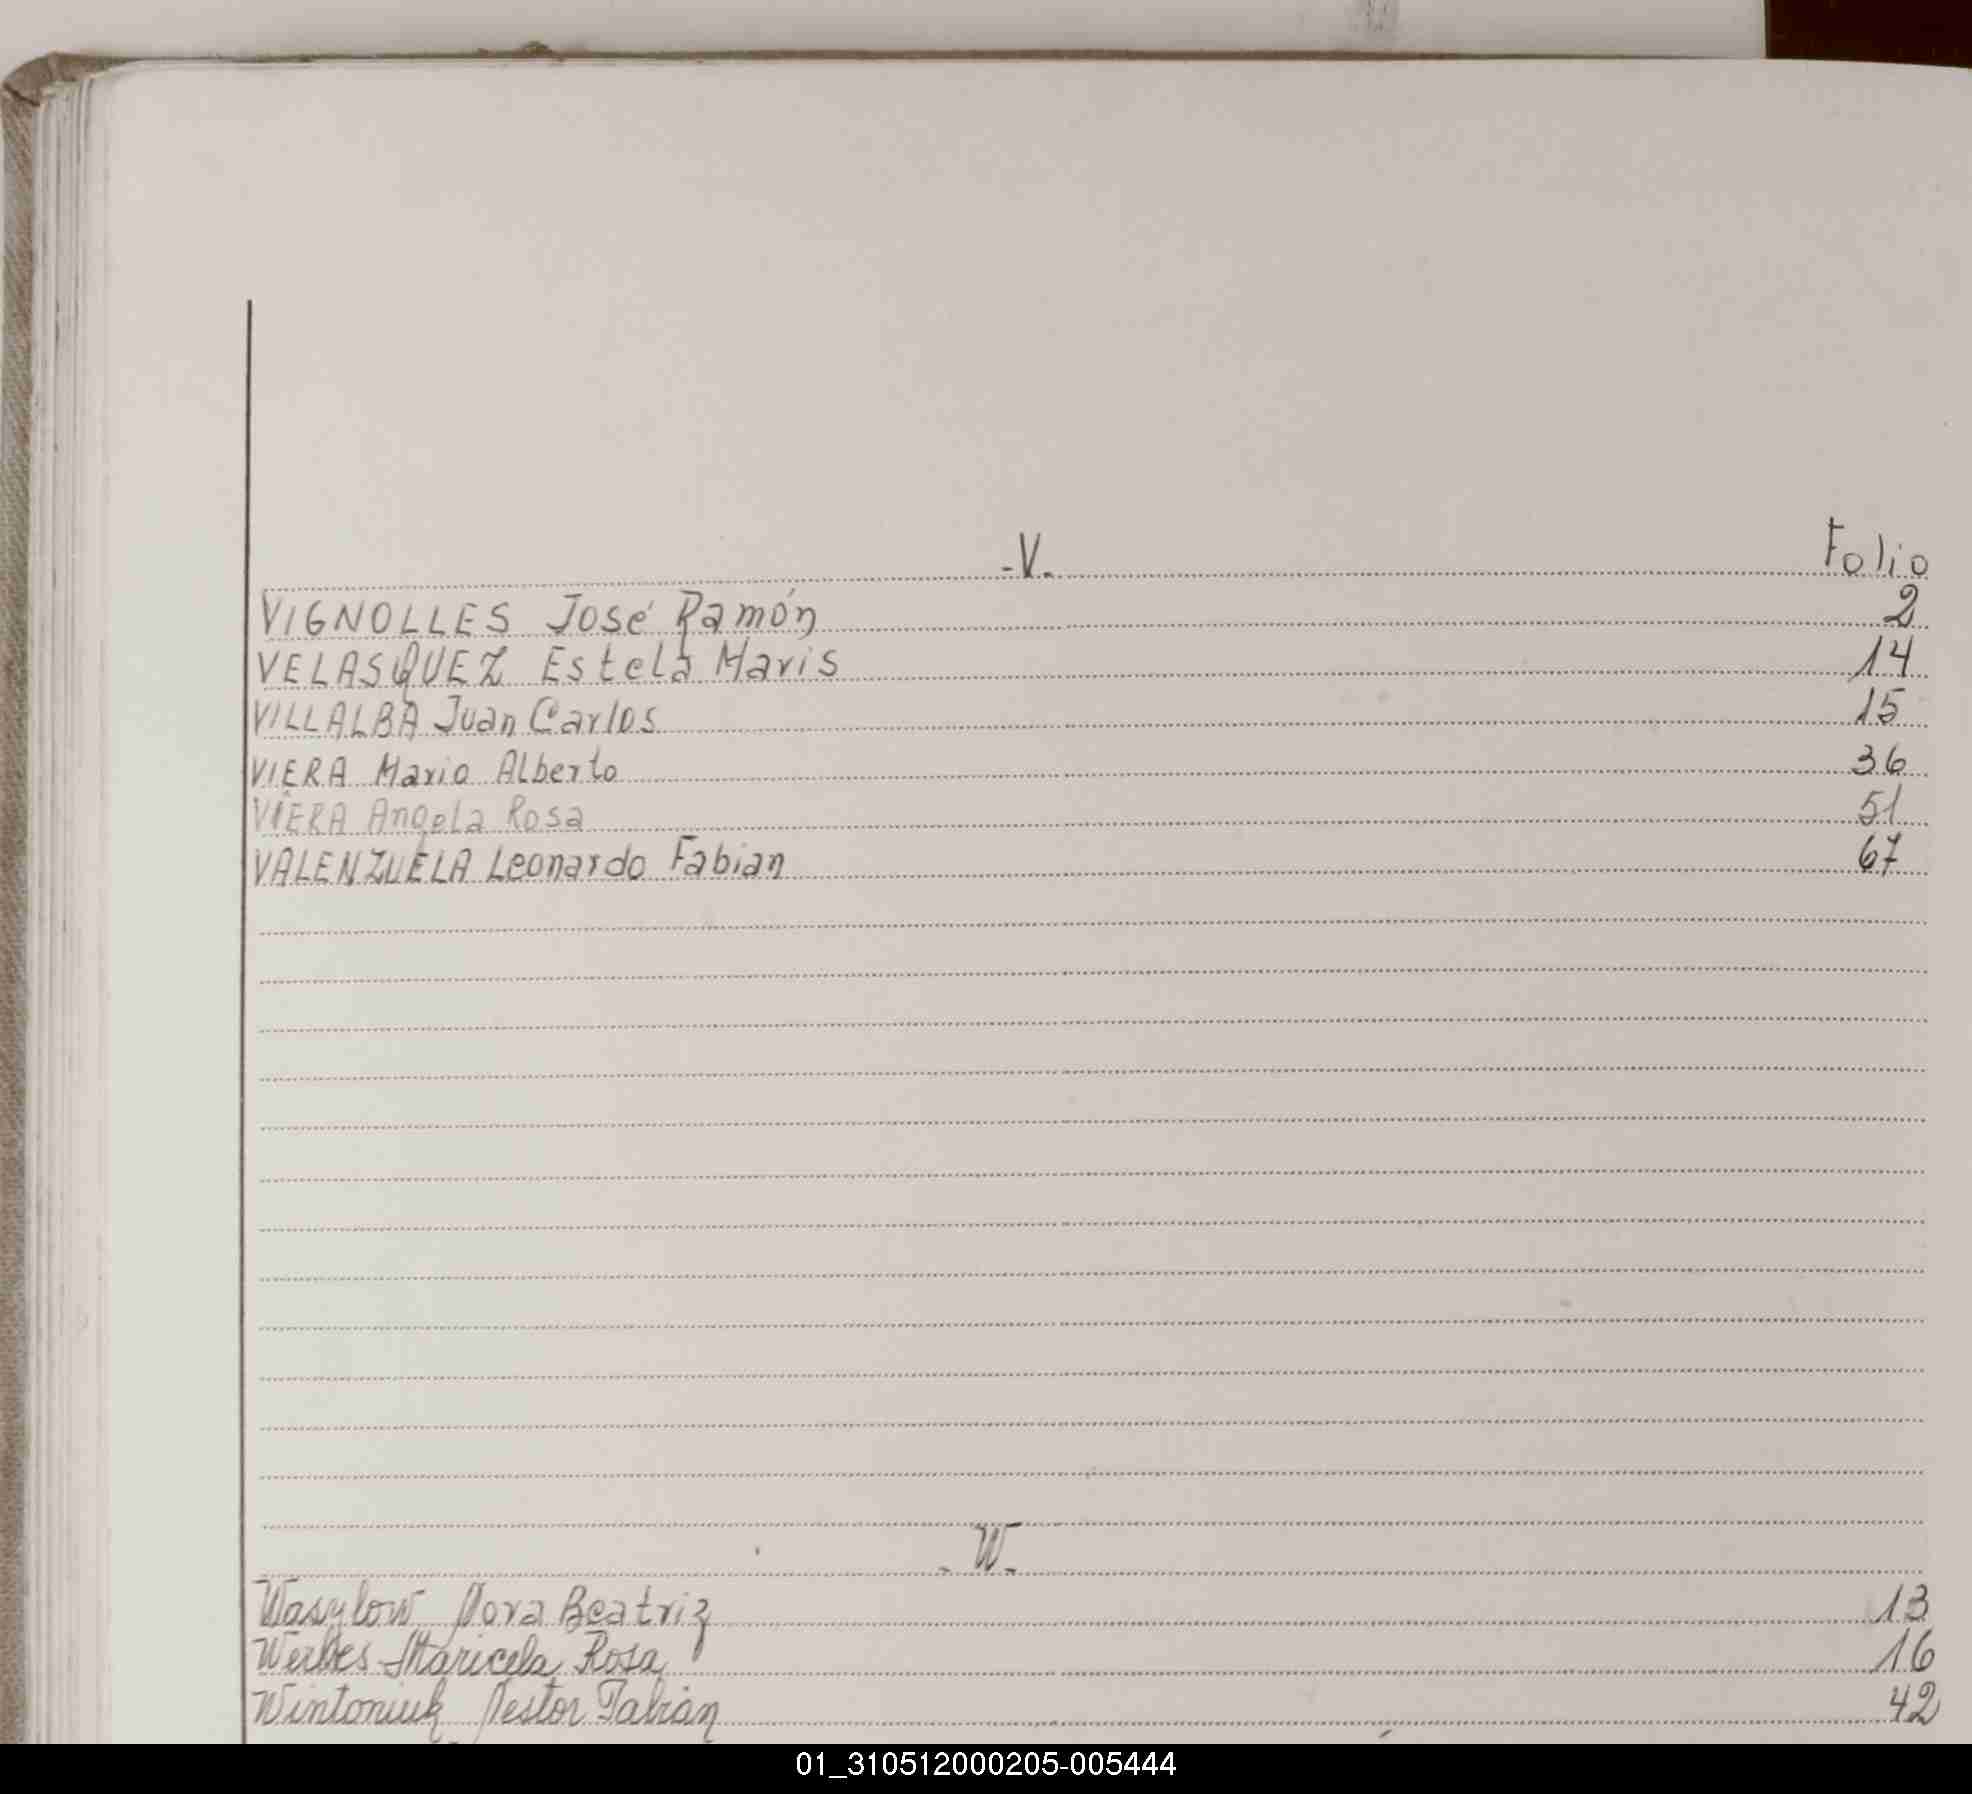 -V- Folio
VIGNOLLES José Ramón 2
VELASQUEZ Estela Maris 14
VILLALBA Juan Carlos 15
VIERA Mario Alberto 36
VIERA Angela Rosa 51
VALENZUELA Leonardo Fabian 67
-W-
Wasylow Nora Beatriz 13
Werbes Maricela Rosa 16
Wintoniuk Nestor Fabián 42
01_310512000205-005444